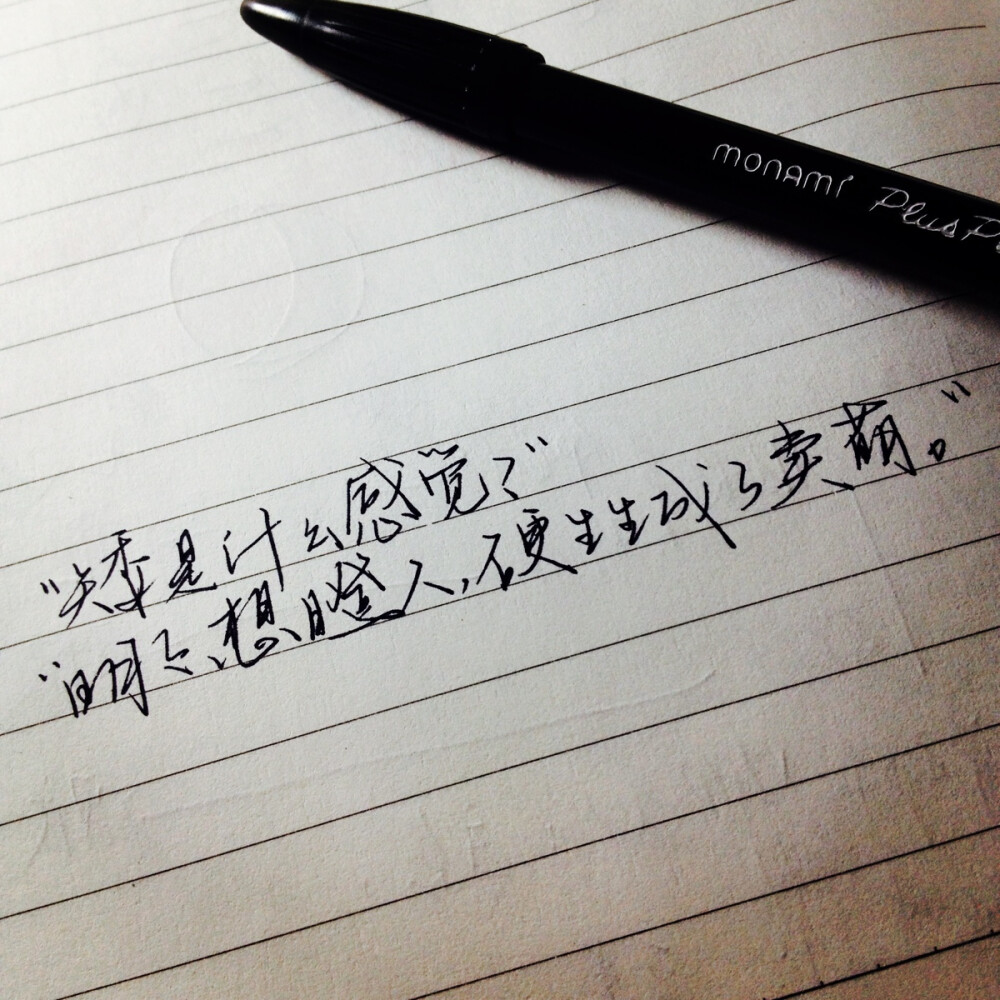 monami Plus P
“矮是什么感觉？”
“明明想瞪人，硬生生成了卖萌。”